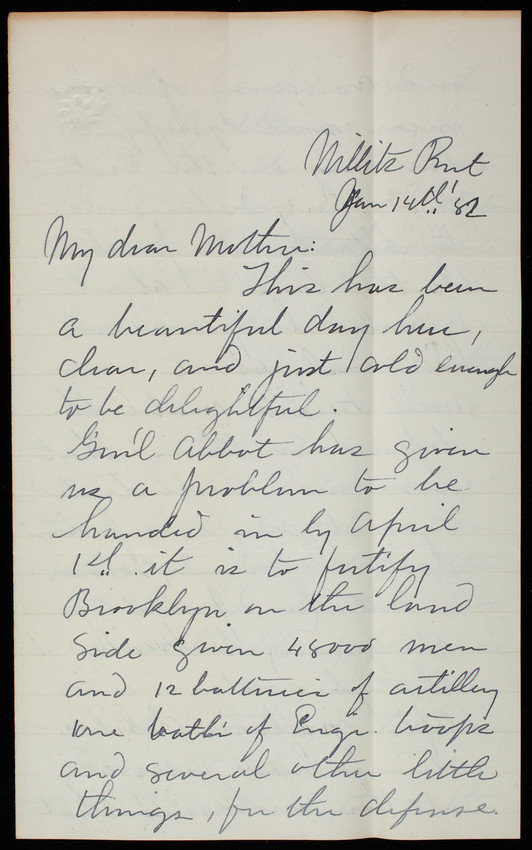 Willits Point
Jan 14th '82
My dear Mother:
This has been
a beautiful day here,
clear, and just cold enough
to be delightful.
Gen'l Abbot has given
us a problem to be
handed in by April
1st. it is to fortify
Brooklyn on the land
side given 48000 men
and 12 batteries of artillery
one batt'n of Engr. troops
and several other little
things, for the defense.